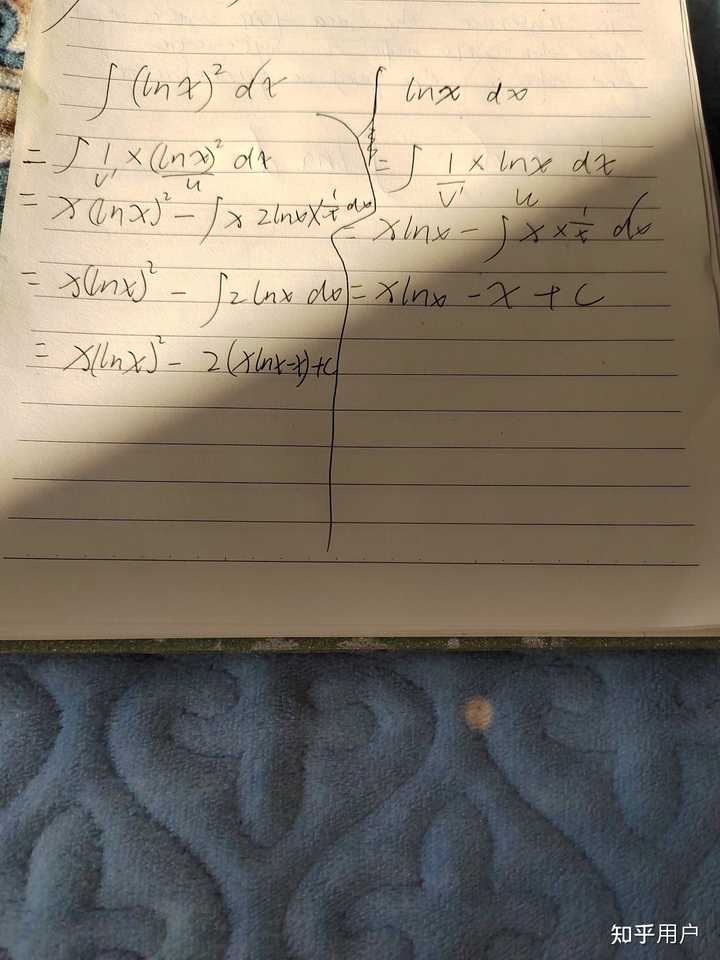 ∫ (lnx)² dx
= ∫ 1 × (lnx)² dx
v' u
= x(lnx)² − ∫ x 2lnx × 1/x dx
= x(lnx)² − ∫ 2 lnx dx
= x(lnx)² − 2(xlnx−x)+c
∫ lnx dx
= ∫ 1 × lnx dx
v' u
= xlnx − ∫ x × 1/x dx
= xlnx − x + c
知乎用户